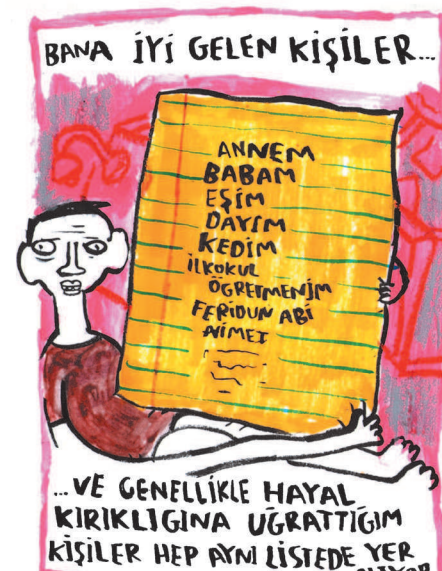 BANA İYİ GELEN KİŞİLER...
ANNEM
BABAM
EŞİM
DAYIM
KEDİM
İLKOKUL
ÖĞRETMENİM
FERİDUN ABİ
NİMET
...VE GENELLİKLE HAYAL
KIRIKLIGINA UĞRATTIĞIM
KİŞİLER HEP AYNI LİSTEDE YER